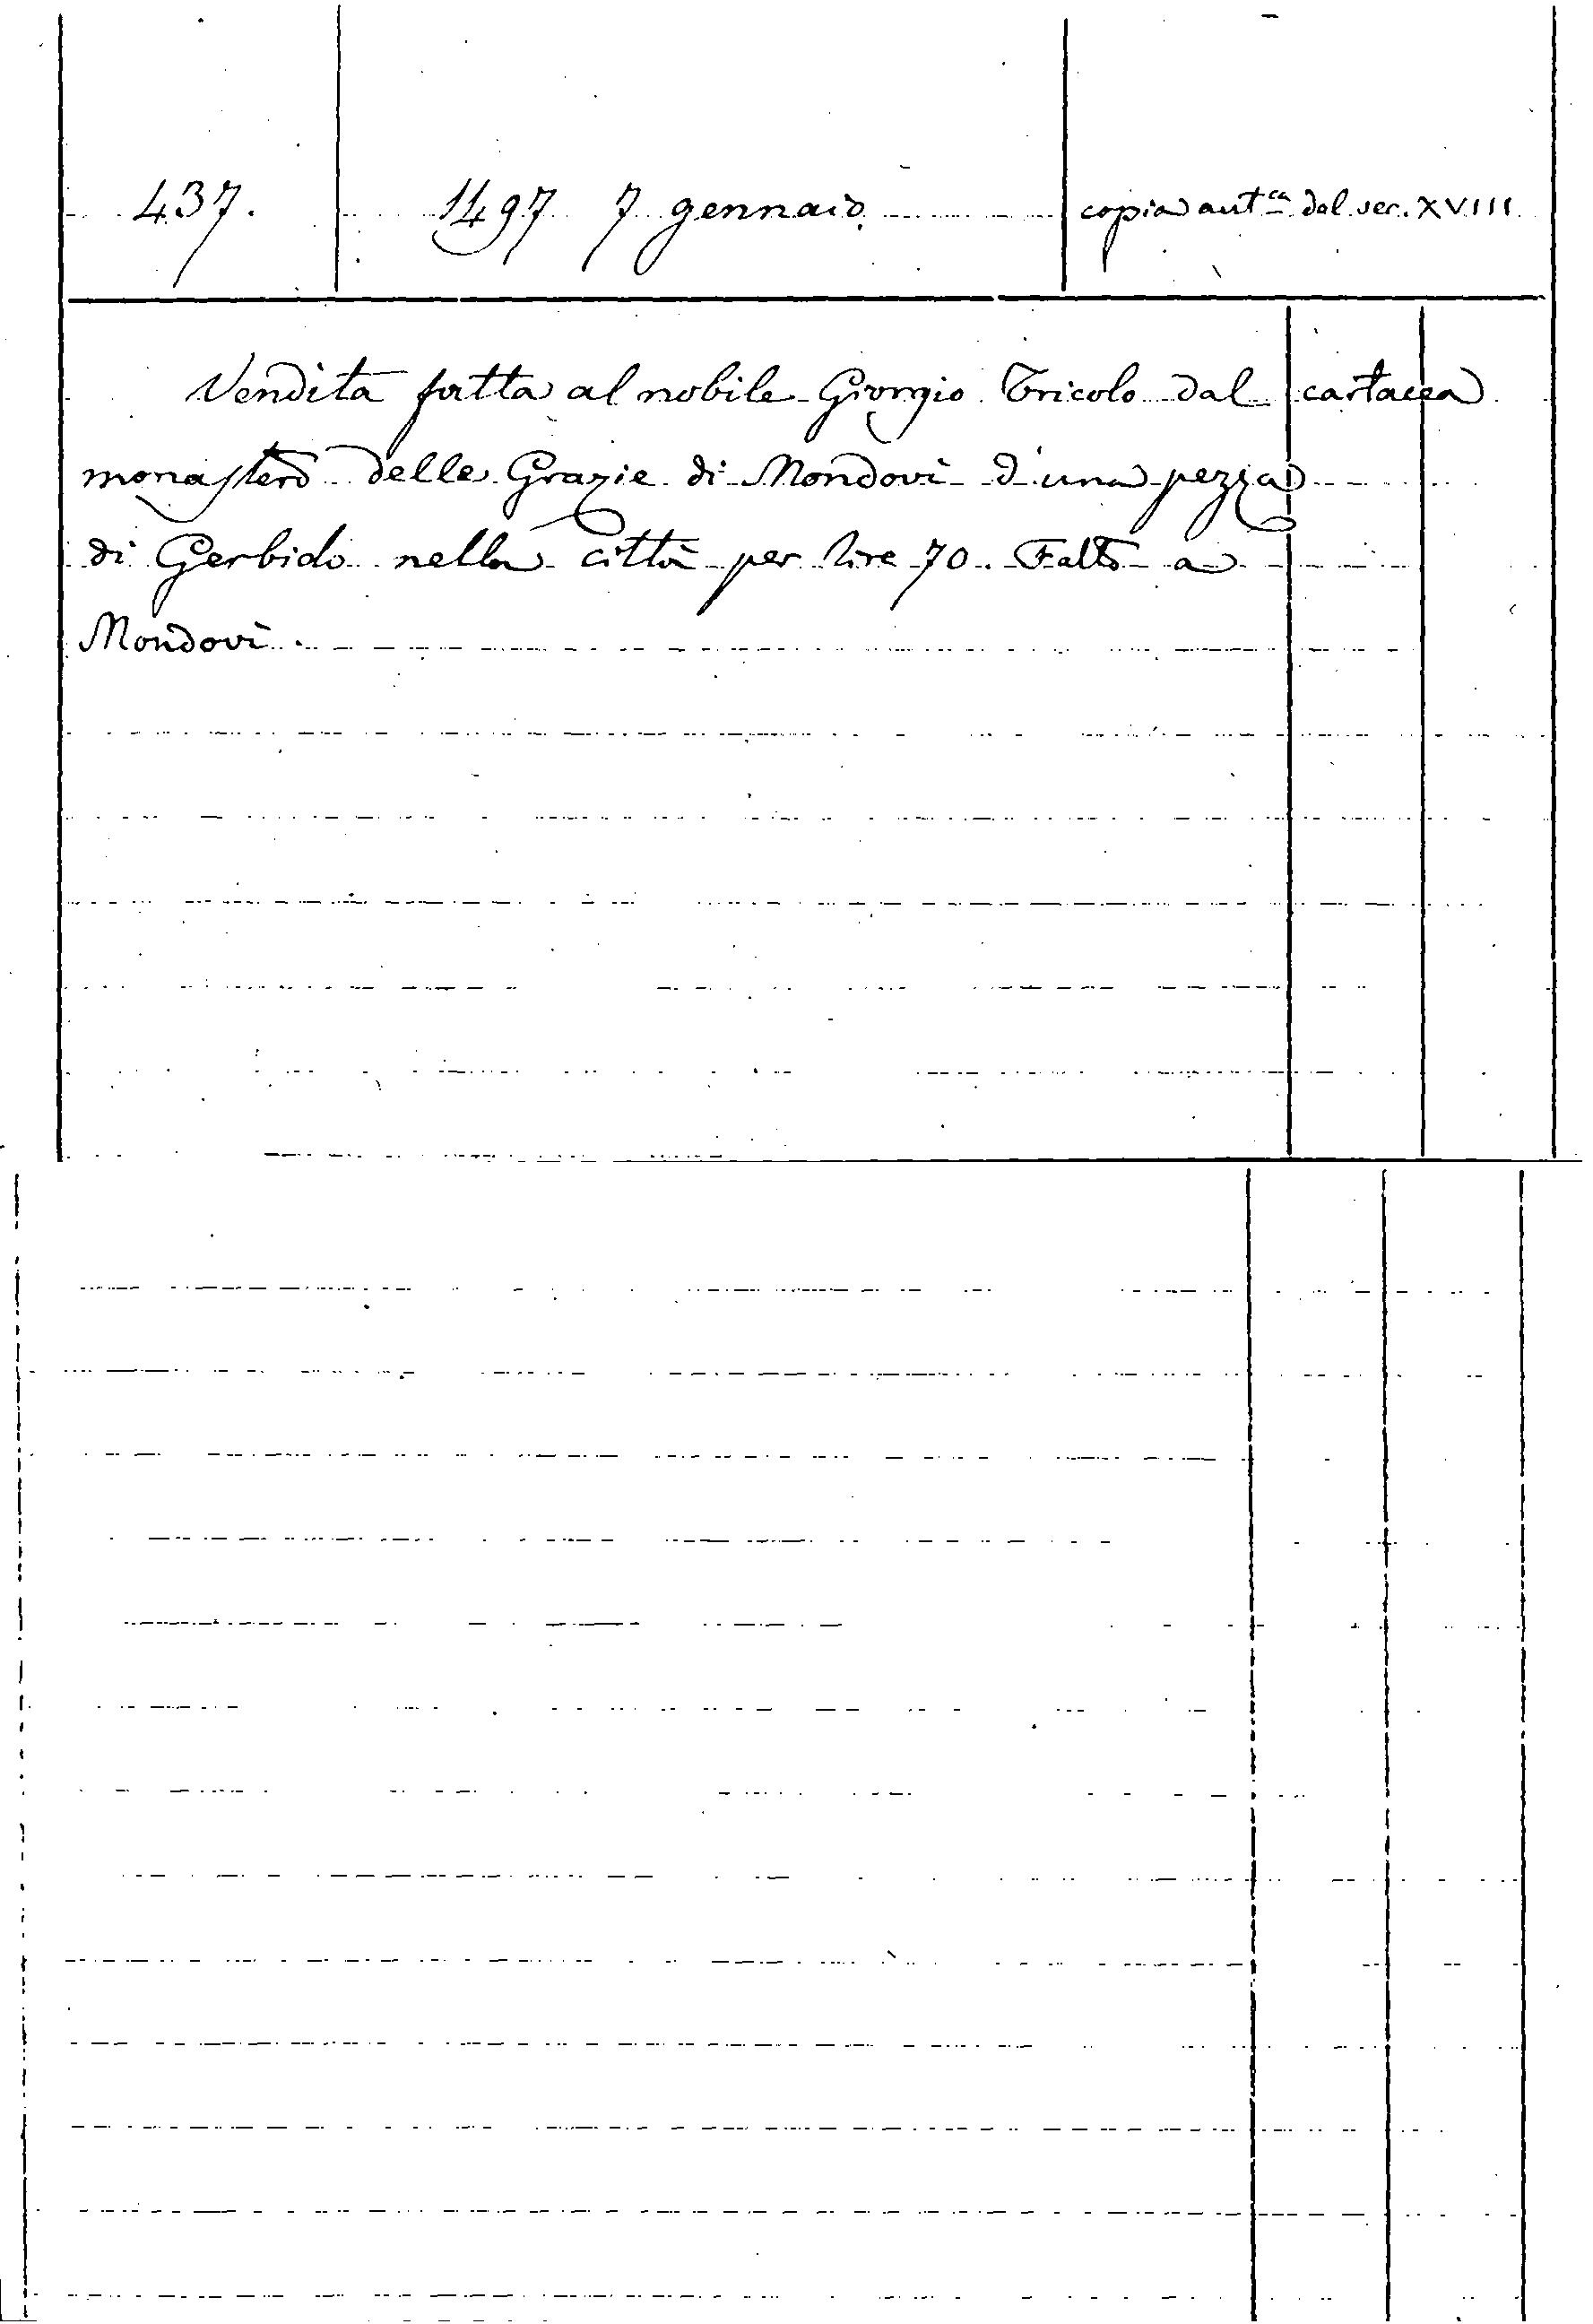 437. 1497 7 gennaio copia aut.ca del sec. XVIII
Vendita fatta al nobile Giorgio Tricolo dal cartacea
monastero delle Grazie di Mondovì d'una pezza
di Gerbido nella città per lire 70. Fatto a
Mondovì.